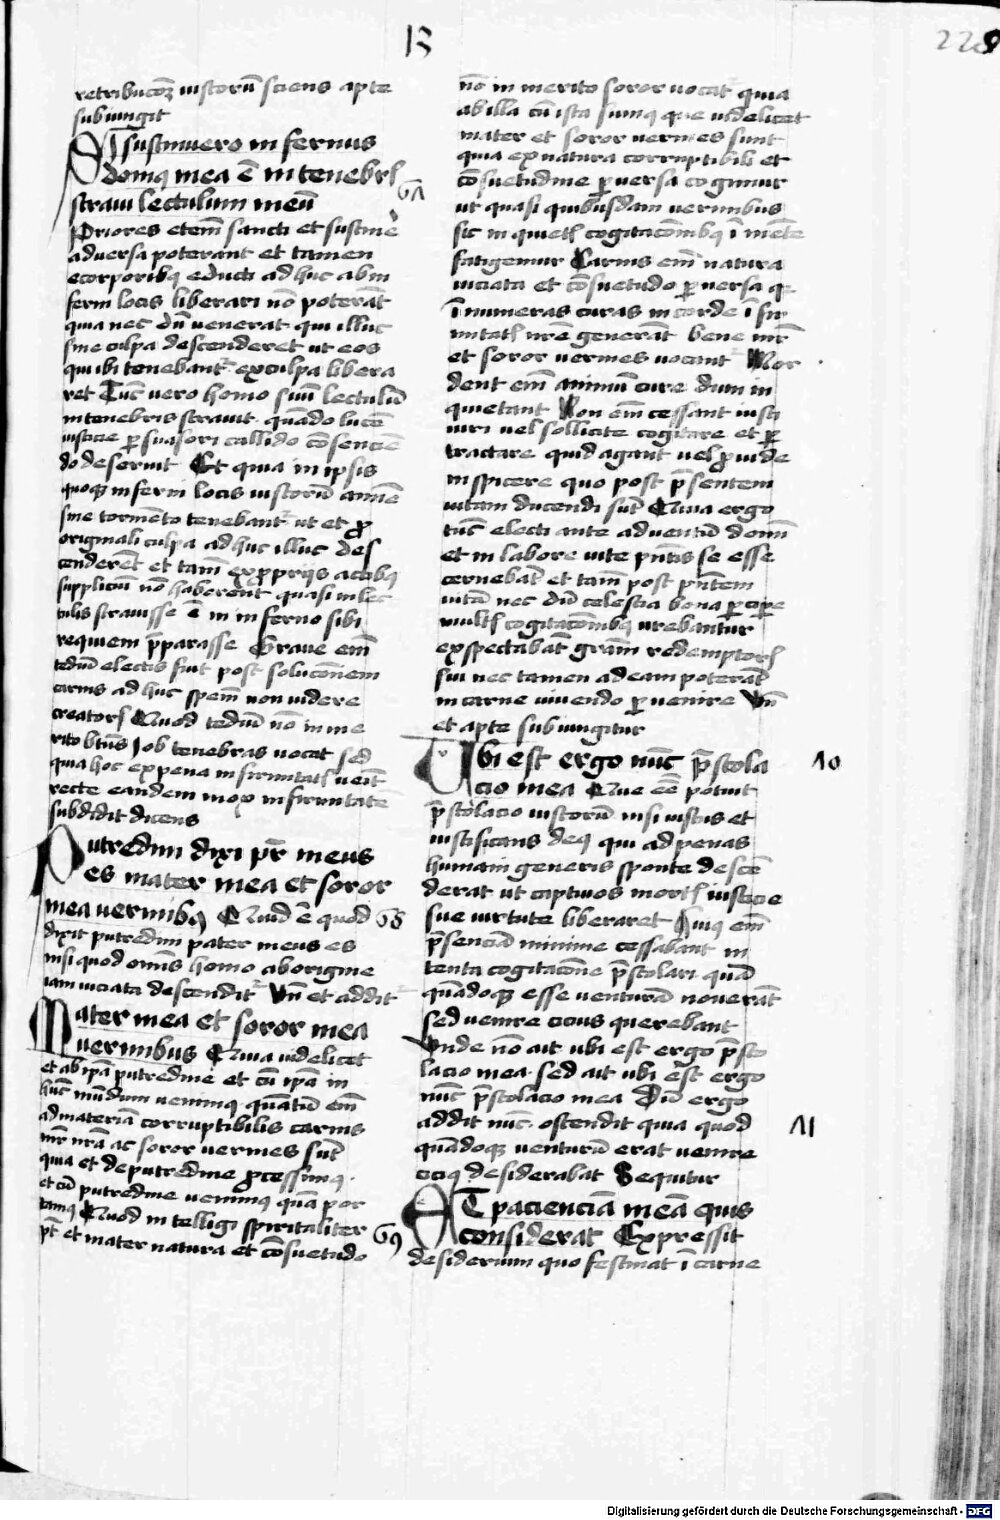 13
228
retribucōꝫ iustorū sciens apte
subiungit
Si sustinuero infernus
domꝰ mea ē in tenebrꝭ
straui lectulum meū
67
Priores etem̄ sancti et sustine
aduersa poterant et tamen
e corporibꝰ educti ad huc ab in
ferni locis liberari nō poterāt
quia nec dū venerat qui illuc
sine culpa descenderet ut eos
qui ibi tenebant' ex culpa libera
ret Tūc vero homo suū lectulū
in tenebris strauit quādo lucē
iusticie ꝑsuasori callido cōsencien
do deseruit Et quia in ipsis
quoqꝫ inferni locis iustorū anime
sine tormēto tenebant' ut et ꝓ
originali culpa ad huc illuc des
cenderēt et tam̄ ex propriis actibꝰ
suppliciū nō haberent quasi in lec
tulis strauisse ē in inferno sibi
requiem p̄parasse Graue em̄
tediū electis fuit post solucōnem
carnis ad huc spem̄ non videre
creatorꝭ Quod tediū nō inme
rito btūs Job tenebras vocat sed
quia hoc ex pena infirmitatꝭ venit
recte eandem mox infirmitatē
subdidit dicens
Putredini dixi pr̄ meus
es mater mea et soror
mea vermibꝰ Quid ē quod
68
dixit putredini pater meus es
nisi quod om̄is homo ab origine
iam viciata descendit Vn̄ et addit'
Mater mea et soror mea
vermibus Quia videlicet
et ab ip̄a putredine et cū ip̄a in
hūc mūdum venimꝰ quātū em̄
ad materiā corruptibilis carnis
mr̄ nr̄a ac soror vermes sūt
quia et de putredine ꝓcessimꝰ
et cū putredine venimꝰ quā por
tamꝰ Quod intelligi spiritaliter
69
pt̄ et mater natura et cōsuetudo
nō inmerito soror vocat' quia
ab illa cū ista sumꝰ que videlicet
mater et soror vermes sunt
quia ex natura corruptibili et
cōsuetudine ꝑuersa cogimur
ut quasi quibusdam vermibus
sic inquietꝭ cogitacōmbꝰ ī mēte
fatigemur Carnis em̄ natura
viciata et cōsuetudo ꝑuersa q̄
īnumeras curas in corde ī fir
mitatꝭ nr̄e generāt bene mr̄
et soror vermes vocant' Mor
dent em̄ animū cure dum in
quietant Non em̄ cessant iusti
viri vel sollicite cogitare et ꝑ
tractare quid agant vel ꝓuide
inspicere quo post p̄sentem
vitam ducendi sūt Quia ergo
tūc electi ante aduentū domi
et in labore vite pn̄tis se esse
cernebāt et tam̄ post pn̄tem
vitā nec dū celestia bona ꝑcipe
multꝭ cogitacōmbꝰ urebantur
expectabāt gr̄am redemptorꝭ
sui nec tamen ad eam poterāt
in carne viuendo ꝑuenire Vn̄
et apte subiungitur
Ubi est ergo nūc p̄stola
cio mea Que eē potuit
70
p̄stolacio iustorū nisi iustus et
iustificans deꝰ qui ad penas
humani generis sponte descē
derat ut captiuos mortꝭ iusticie
sue virtute liberaret Huiꝰ em̄
p̄senciā minime cessabant in
tenta cogitacōne p̄stolari quā
quādoqꝫ esse venturā nouerāt
sed venire cicius querebant
Unde nō ait ubi est ergo p̄sto
lacio mea sed ait ubi est ergo
nūc p̄stolacio mea Dū ergo
addit nūc ostendit quia quod
71
quādoqꝫ venturū erat venire
ciciꝰ desiderabat Sequitur
Et pacienciā meā quis
considerat Expressit
desiderium quo festinat ī carne
Digitalisierung gefördert durch die Deutsche Forschungsgemeinschaft - DFG